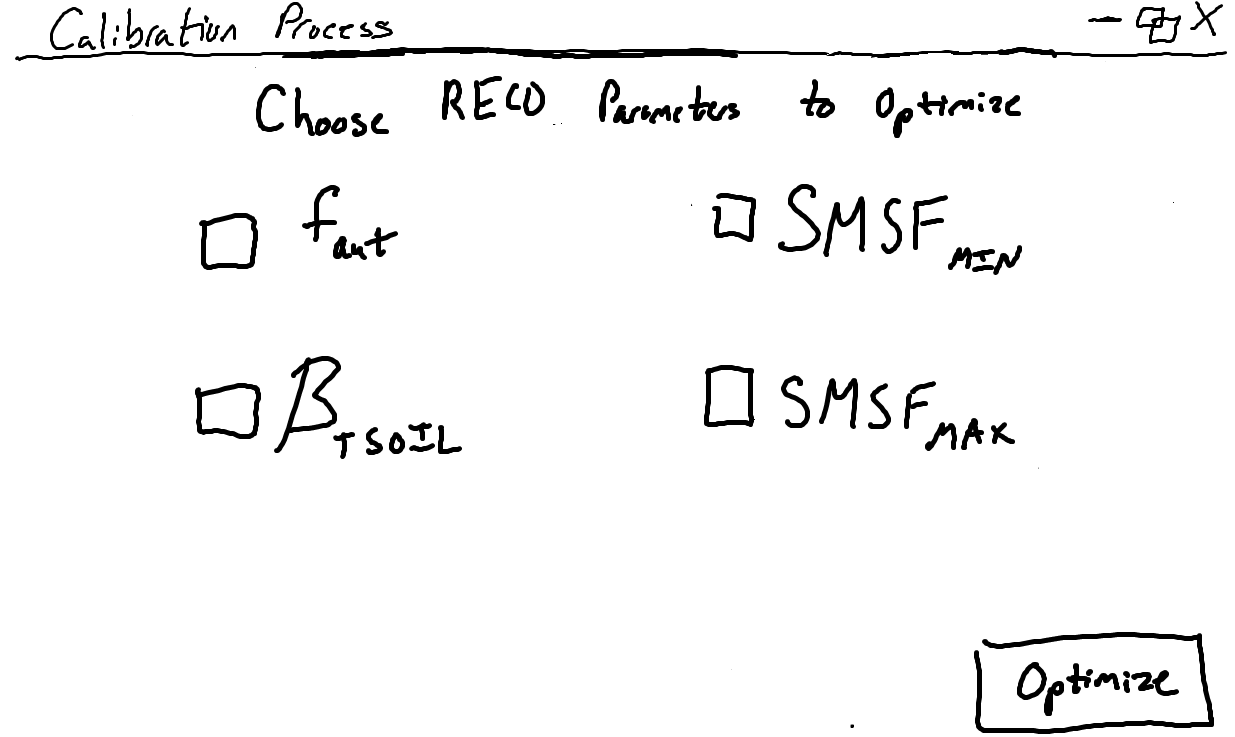 Calibration Process
Choose RECO Parameters to Optimize
faut SMSFMIN
βTSOIL SMSFMAX
Optimize